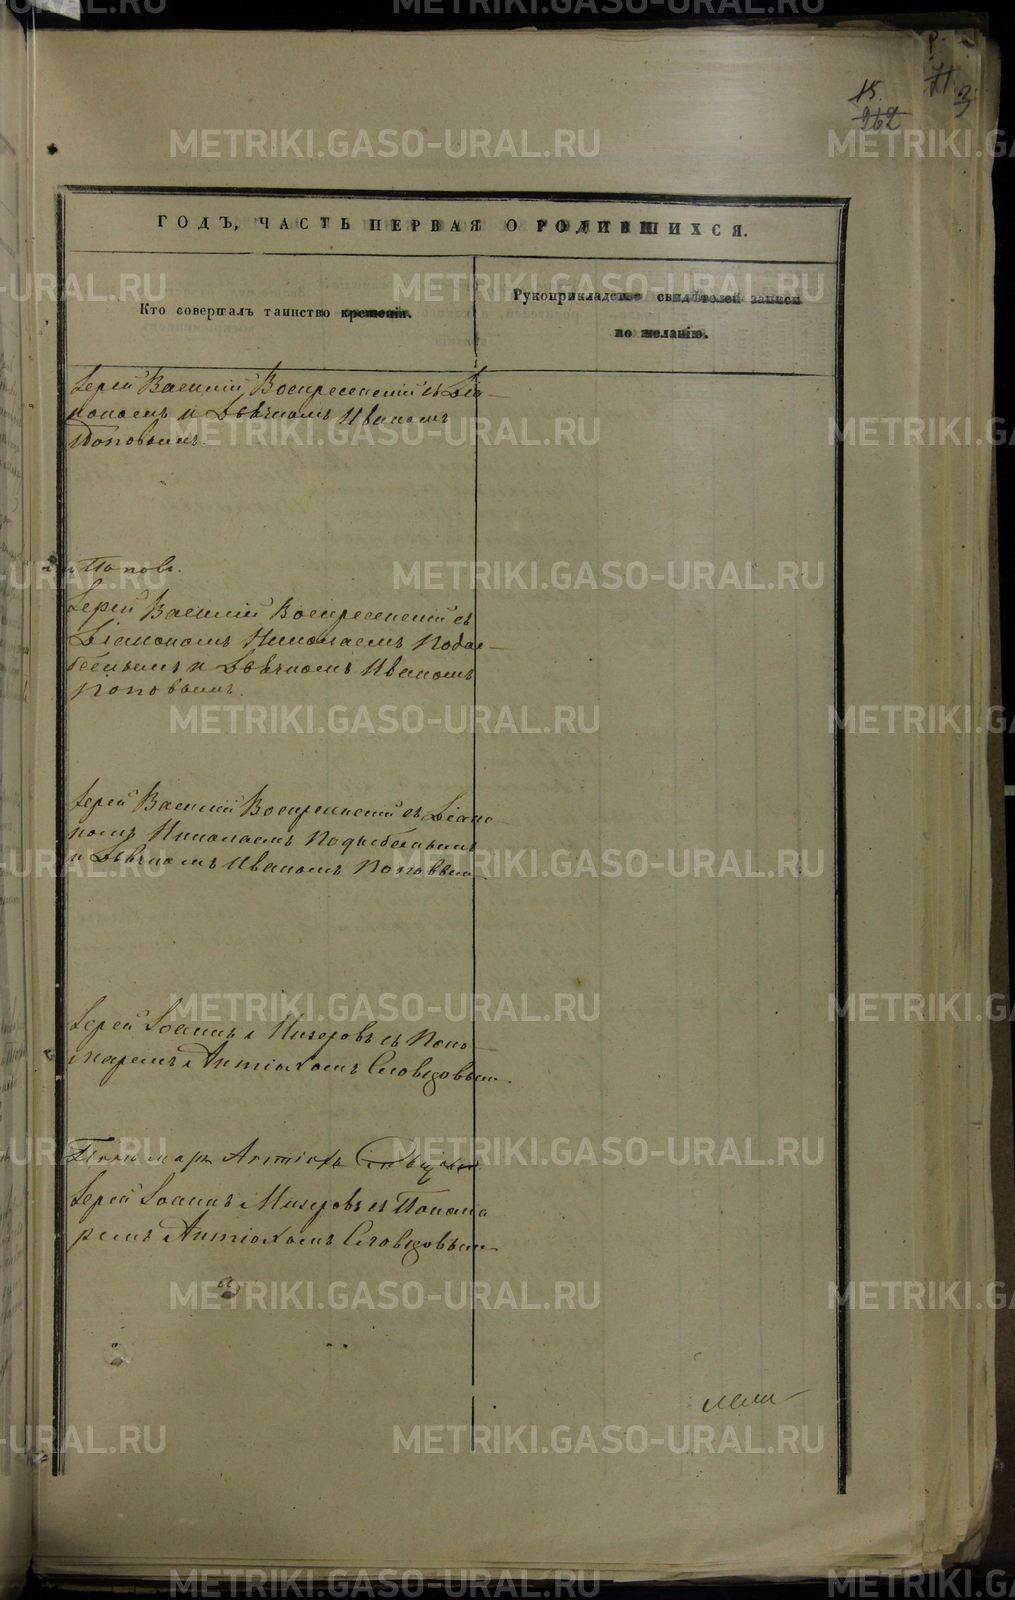 15.
962
71
3
ГОДЪ, ЧАСТЬ ПЕРВАЯ О РОДИВШИХСЯ.
Кто совершалъ таинство крещенія.
Рукоприкладство свидѣтелей записи
по желанію.
Іерей Василій Воскресенскій съ Діа-
кономъ и Дьячкомъ Иваномъ
Поповымъ.
Поповъ.
Іерей Василій Воскресенскій съ
Діакономъ Николаемъ Подъя-
бельнымъ и Дьячкомъ Иваномъ
Поповымъ.
Іерей Василій Воскресенскій съ Діако-
номъ Николаемъ
и Дьячкомъ Иваномъ Поповым
Іерей Іоаннъ Мизеровъ съ Поно-
маремъ Антіохомъ Словцовым
Пономарь Антіохъ
Іерей Іоаннъ Мизеровъ съ Понома
ремъ Антіохомъ Словцовым
METRIKI.GASO-URAL.RU